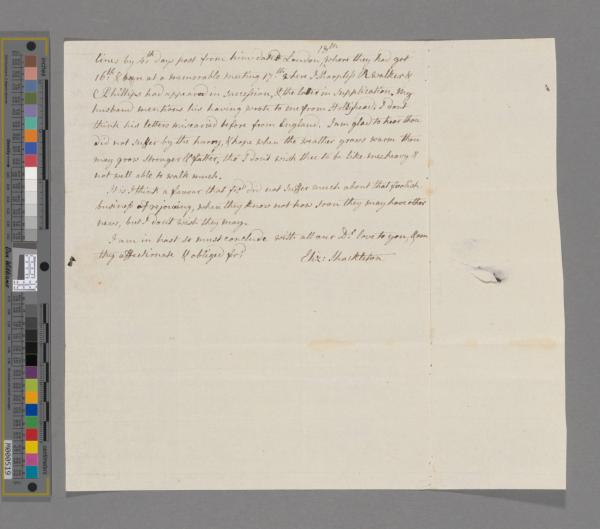 18th
lines by 4th days post from him dated London, where they had got
16th & been at a memorable meeting 17th where I: Sharpless R: Walker &
C: Phillips had appeared in succession, & the latter in supplication. My
husband mentions his having wrote to me from Holyhead; I don't
think his letters miscarried before from England. I am glad to hear thou
did not suffer by the hurry, & hope when the weather grows warm thou
may grow stronger & fatter, tho' I don't wish thee to be like me heavy &
not well able to walk much.
It is I think a favour that frds did not suffer much about that foolish
business of rejoicing, when they know not how soon they may have other
news, but I don't wish they may.
I am in hast so must conclude with all our Dr love to you,
thy affectionate & obliged frd Eliz: Shackleton
M000519